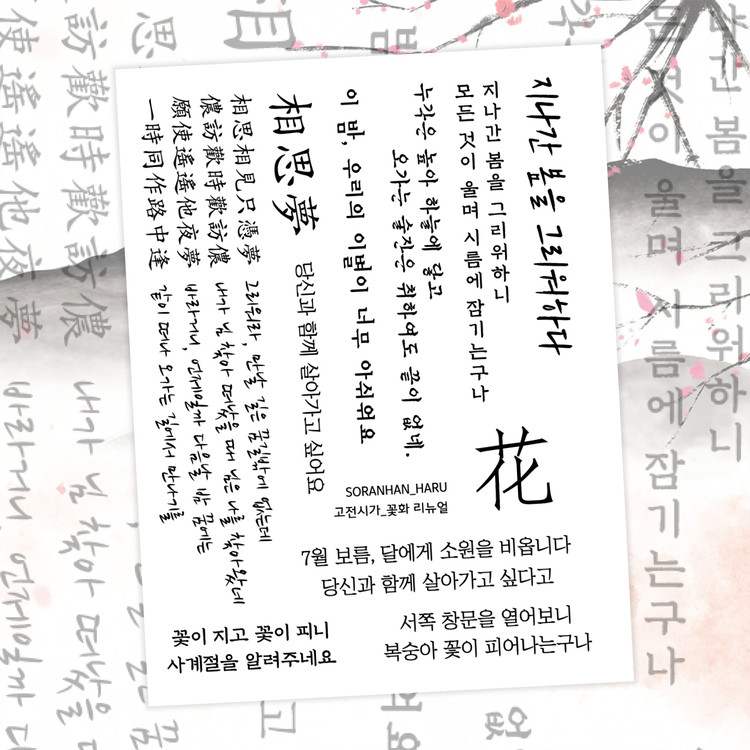 지나간 봄을 그리워하다
지나간 봄을 그리워하니
모든 것이 울며 시름에 잠기는구나
누각은 높아 하늘에 닿고
오가는 술잔은 취하여도 끝이 없네.
이 밤, 우리의 이별이 너무 아쉬워요
相思夢
당신과 함께 살아가고 싶어요
相思相見只憑夢
儂訪歡時歡訪儂
願使遙遙他夜夢
一時同作路中逢
그리워라, 만날 길은 꿈길밖에 없는데
내가 님 찾아 떠났을 때 님은 나를 찾아왔네
바라거니, 언제일까 다음날 밤 꿈에는
같이 떠나 오가는 길에서 만나기를
花
SORANHAN_HARU
고전시가_꽃화 리뉴얼
7월 보름, 달에게 소원을 비옵니다
당신과 함께 살아가고 싶다고
서쪽 창문을 열어보니
복숭아 꽃이 피어나는구나
꽃이 지고 꽃이 피니
사계절을 알려주네요